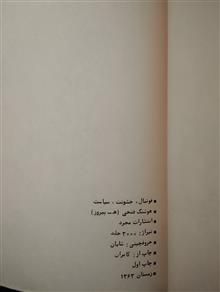 • فوتبال، خشونت، سیاست
• هوشنگ فتحی (هـ- پیروز)
• انتشارات مجرد
• تیراژ: ۳۰۰۰ جلد
• حروفچینی: شایان
• چاپ از: کامران
• چاپ اول
• زمستان ۱۳۶۳